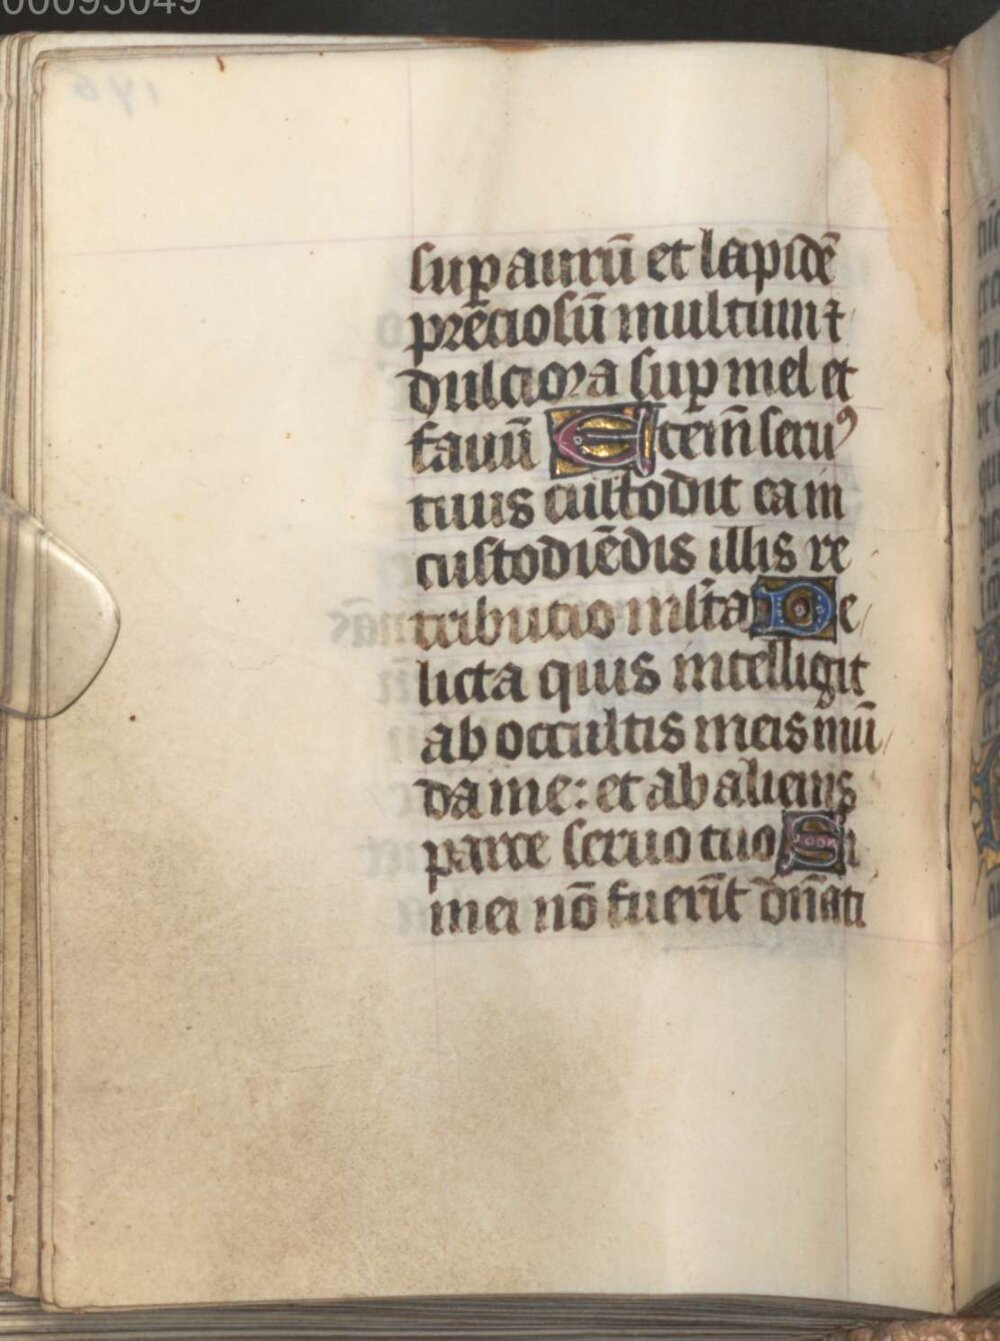 00095049
sup aurū et lapidē
preciosū multum ⁊
dulciora sup mel et
fauū Etem̄ seruꝰ
tuus custodit ea in
custodiēdis illis re
tributio ml̄ta De
licta quis intelligit
ab occultis meis mū
da me: et ab alienis
parce seruo tuo Si
mei nō fuerīt dn̄ati